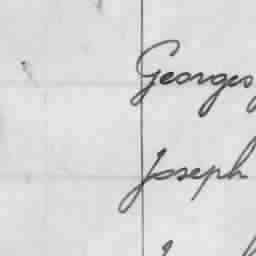 Georges
Joseph